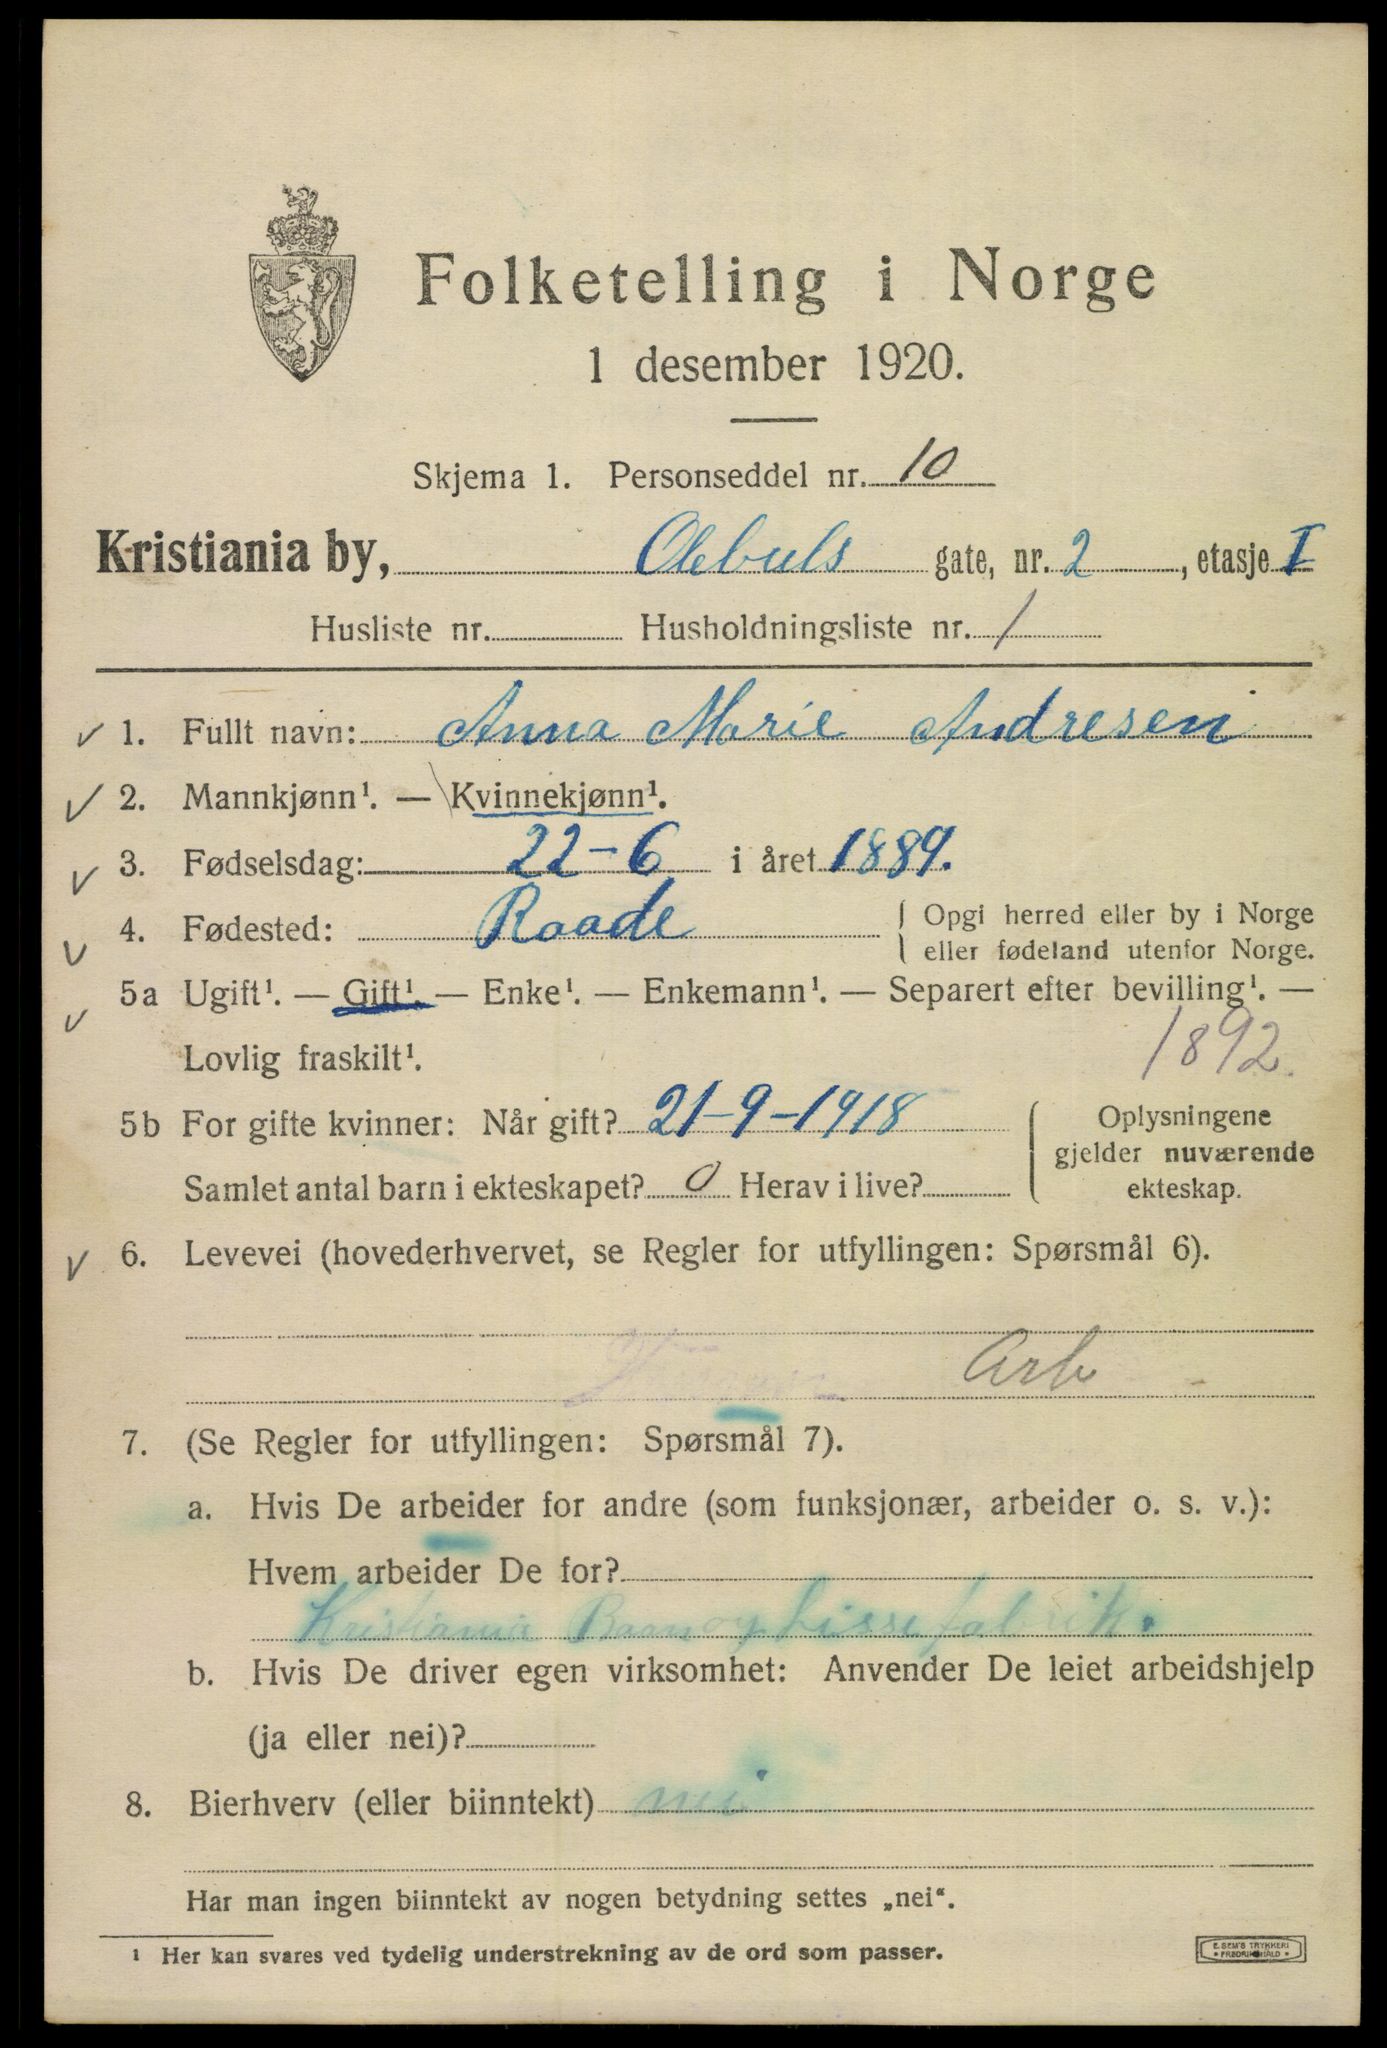 Folketelling i Norge
1 desember 1920.
Skjema 1. Personseddel nr. 10
Kristiania by, Olebuls gate, nr. 2, etasje I
Husliste nr. Husholdningsliste nr. 1
1. Fullt navn: Anna Marie Andresen
2. Mannkjønn¹. — Kvinnekjønn¹.
3. Fødselsdag: 22-6 i året 1889.
4. Fødested: Raade { Opgi herred eller by i Norge
eller fødeland utenfor Norge.
5a Ugift¹. — Gift¹. — Enke¹. — Enkemann¹. — Separert efter bevilling¹. —
Lovlig fraskilt¹. 1892.
5b For gifte kvinner: Når gift? 21-9-1918
Samlet antal barn i ekteskapet? 0 Herav i live?
Oplysningene
gjelder nuværende
ekteskap.
6. Levevei (hovederhvervet, se Regler for utfyllingen: Spørsmål 6).
Arb
7. (Se Regler for utfyllingen: Spørsmål 7).
a. Hvis De arbeider for andre (som funksjonær, arbeider o. s. v.):
Hvem arbeider De for?
Kristiania fabrik.
b. Hvis De driver egen virksomhet: Anvender De leiet arbeidshjelp
(ja eller nei)?
8. Bierhverv (eller biinntekt) nei
Har man ingen biinntekt av nogen betydning settes „nei“.
¹ Her kan svares ved tydelig understrekning av de ord som passer.
E. SEM'S TRYKKERI
FREDRIKSHALD